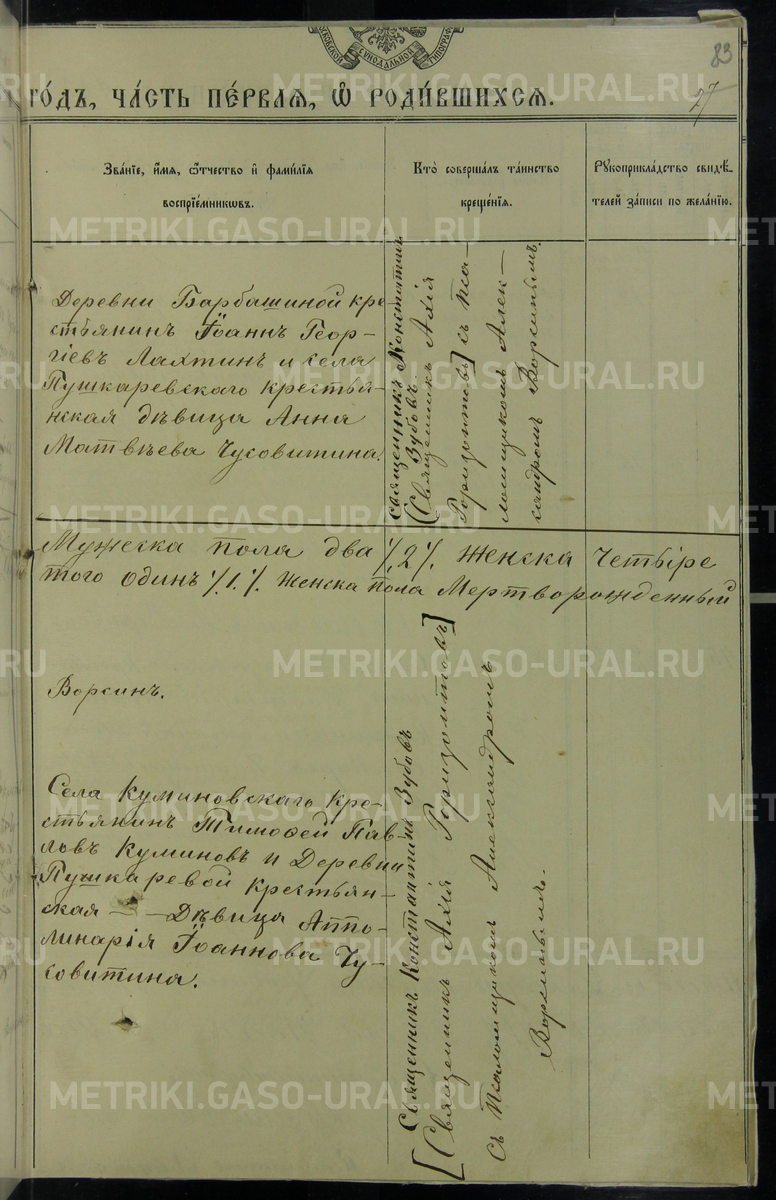 МОСКОВСКОЙ СУНОДАЛЬНОЙ ТИПОГРАФ
83
27
METRIKI.GASO-URAL.RU
го́дъ, ча́сть пе́рваѧ, ѡ҆ роди́вшихсѧ.
Зва́нїе, и҆́мѧ, ѻ҆́тчество и҆ фами́лїѧ
воспрїе́мникѡвъ.
Кто̀ соверша́лъ та́инство
креще́нїѧ.
Рꙋкоприкла́дство свидѣ́-
телей за́писи по жела́нїю.
Деревни Барбашиной кре-
стьянинъ Іоаннъ Геор-
гіевъ Лахтинъ и села
Пушкаревскаго крестья-
нская дѣвица Анна
Матвѣева Чусовитина.
Священникъ Константинъ
Зубовъ.
(Священникъ Ахія
Горизонтовъ] съ Пса-
ломщикомъ Алек-
сандромъ Ворсинымъ.
Мужеска пола два %2% женска четыре
того одинъ %1.% женска пола Мертворожденный
METRIKI.GASO-URAL.RU
Ворсинъ.
Села Куминовскаго кре-
стьянинъ Тимофей Пав-
ловъ Куминовъ и Деревни
Пушкаревой крестьян-
ская — — Дѣвица Аппо-
линарія Іоаннова Чу-
совитина.
Священникъ Константинъ Зубовъ
[Священникъ Ахія Горизонтовъ]
съ Псаломщикомъ Александромъ
Ворсинымъ.
METRIKI.GASO-URAL.RU